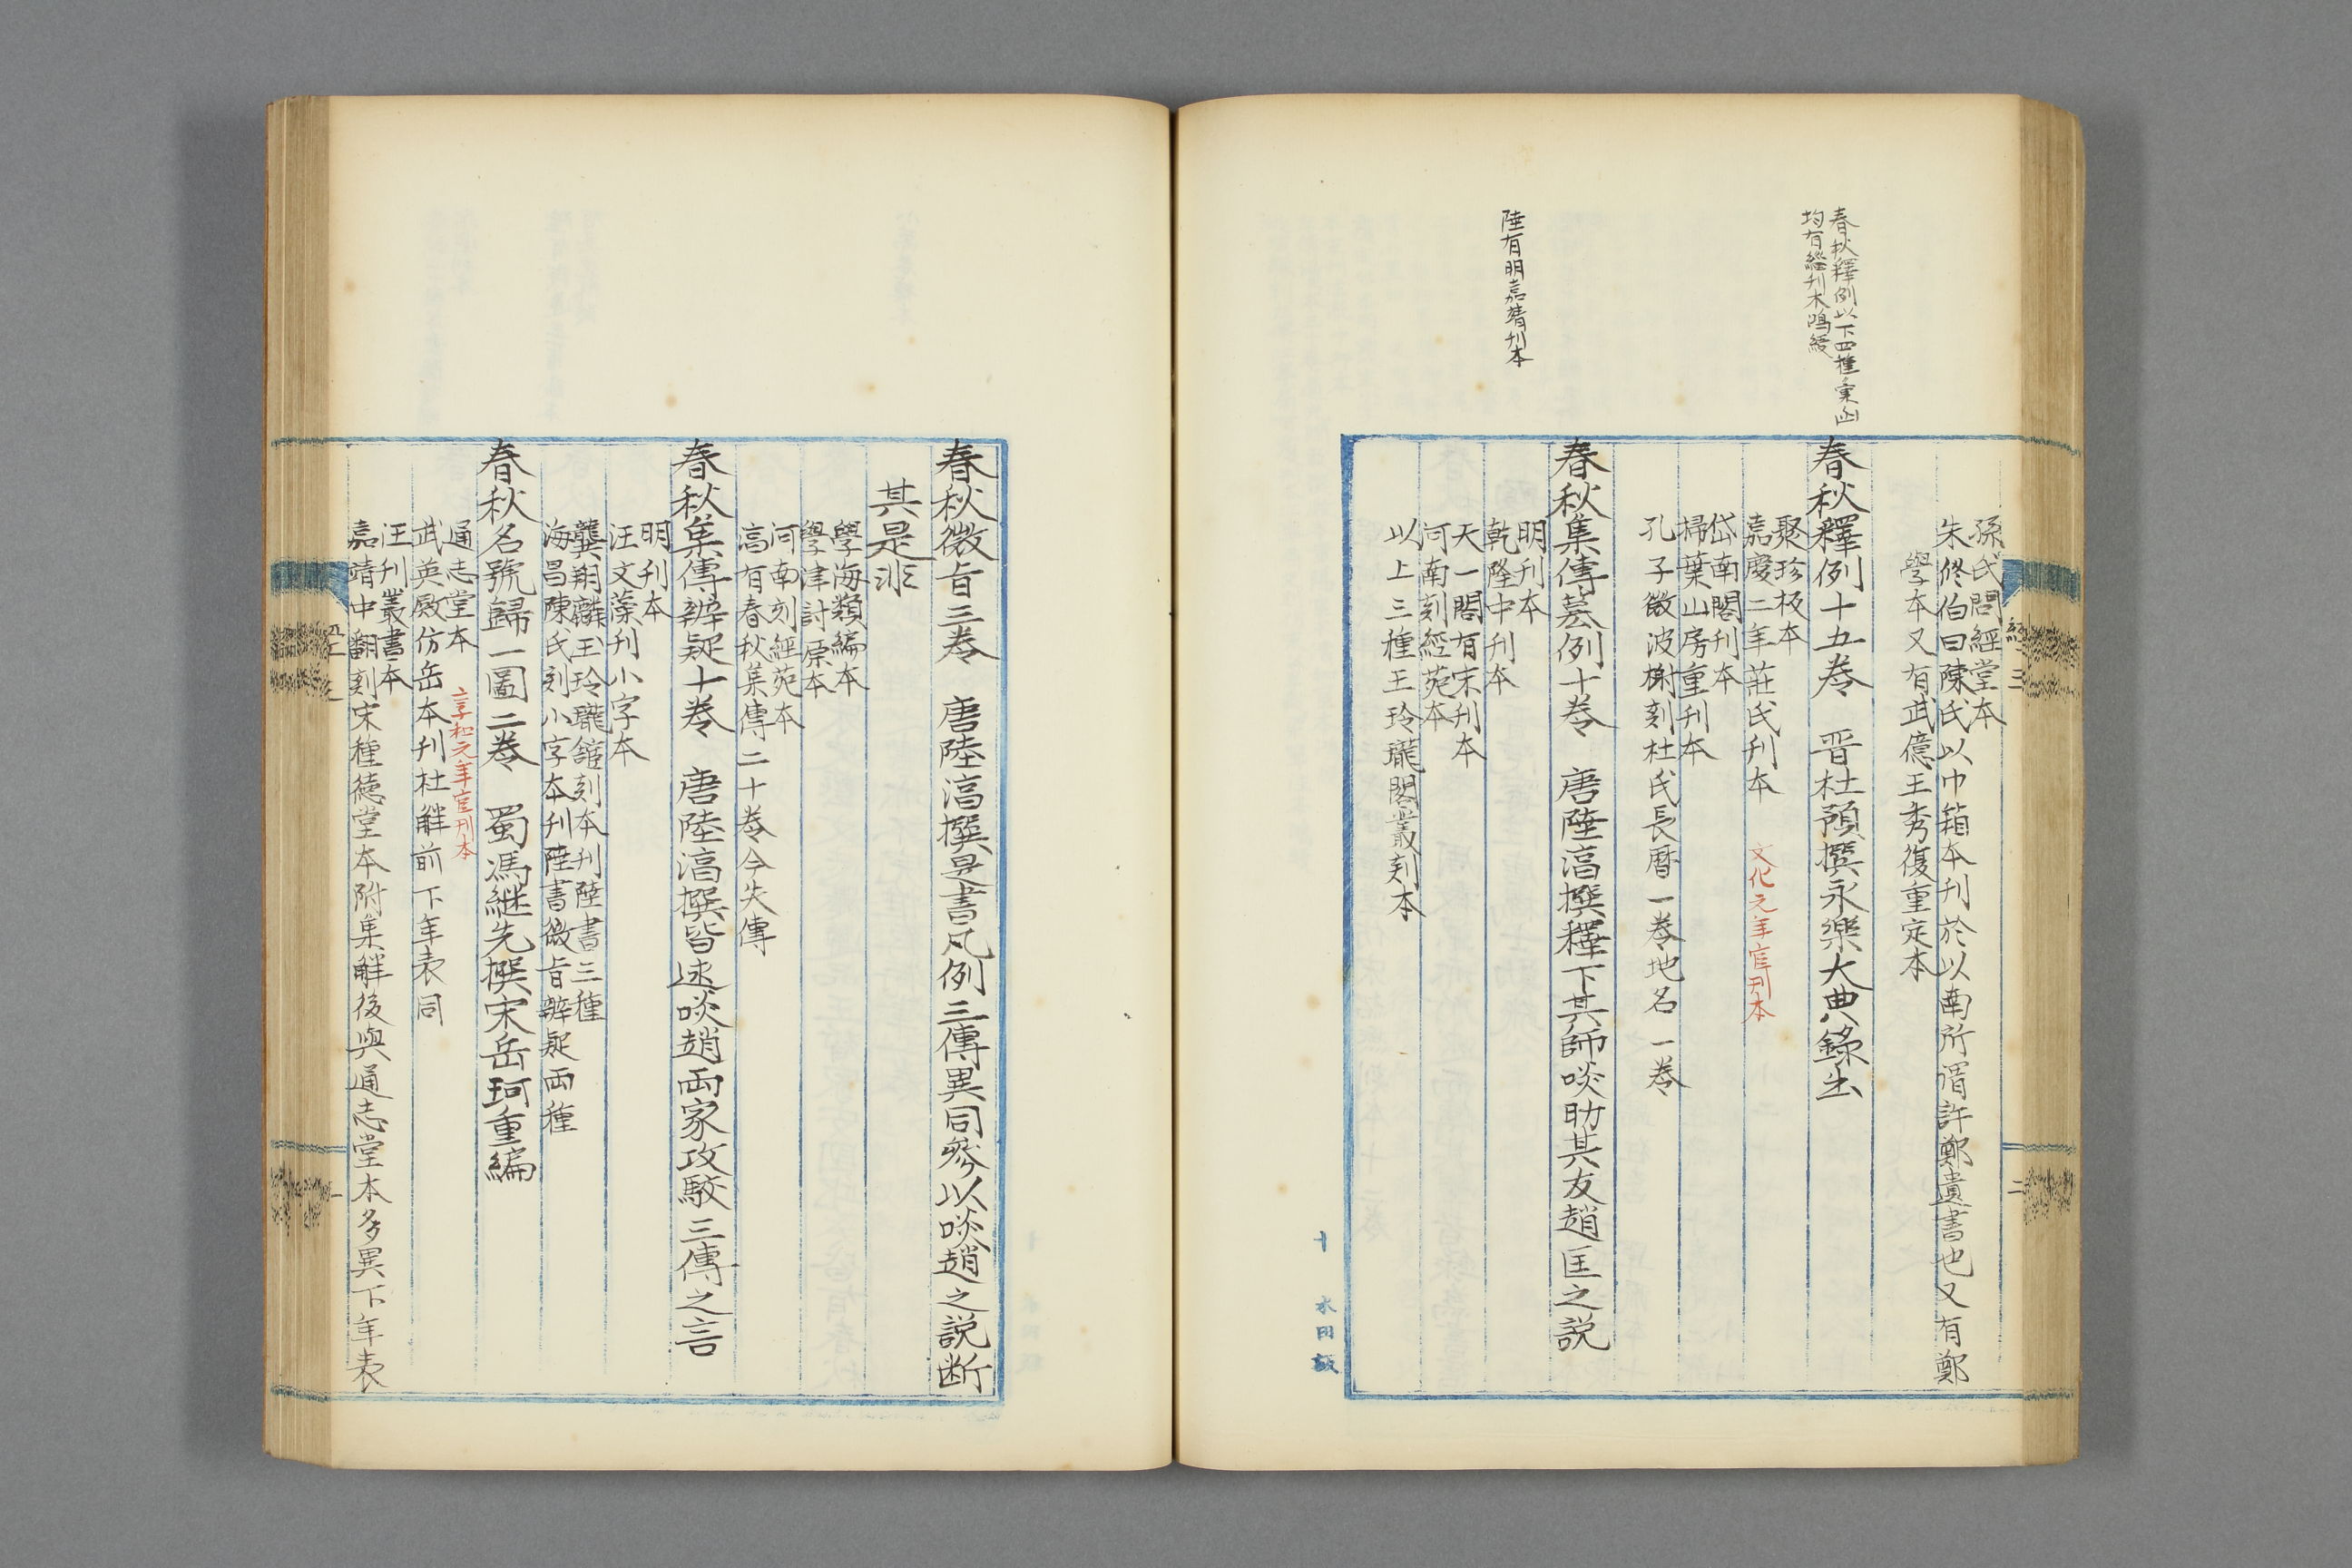 春秋釋例以下四種彙函
均有經刊本鴻緩
陸有明嘉靖刊本
孫氏問經堂本
朱修伯曰陳氏以巾箱本刊於以南所謂許鄭遺書也又有鄭
學本又有武億王秀復重定本
春秋釋例十五卷　晋杜預撰永樂大典錄出
聚珍板本
嘉慶二年莊氏刊本　文化元年官刊本
岱南閣刊本
掃葉山房重刊本
孔子微波榭刻杜氏長曆一卷地名一卷
春秋集傳纂例十卷　唐陸淳撰釋下其師啖助其友趙匡之説
明刊本
乾隆中刊本
天一閣有宋刊本
河南刻經苑本
以上三種王玲瓏閣叢刻本
十　水田版
春秋微旨三卷　唐陸淳撰是書凡例三傳異同參以啖趙之説断
其是非
學海類編本
學津討原本
河南刻經苑本
高有春秋集傳二十卷今失傳
春秋集傳辨疑十卷　唐陸淳撰皆述啖趙両家攻駁三傳之言
明刊本
汪文藻刊小字本
龔翔麟玉玲瓏舘刻本刊陸書三種
海昌陳氏刻小字本刊陸書微旨辨疑両種
春秋名號歸一圖二卷　蜀馮継先撰宋岳珂重編
通志堂本　享和元年官刊本
武英殿仿岳本刊杜觧前下年表同
汪刊叢書本
嘉靖中翻刻宋種徳堂本附集觧後與通志堂本多異下年表